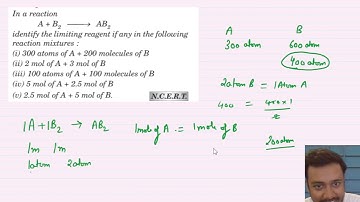 In a reaction
A + B₂ ⟶ AB₂
identify the limiting reagent if any in the following
reaction mixtures :
(i) 300 atoms of A + 200 molecules of B
(ii) 2 mol of A + 3 mol of B
(iii) 100 atoms of A + 100 molecules of B
(iv) 5 mol of A + 2.5 mol of B
(v) 2.5 mol of A + 5 mol of B.
N.C.E.R.T.
A B
300 atom 600 atom
400 atom
2 atom B = 1 Atom A
400 = 400 × 1
2
200 atom
1A + 1B₂ → AB₂
1m 1m
1 atom 2 atom
1 mol of A = 1 mole of B